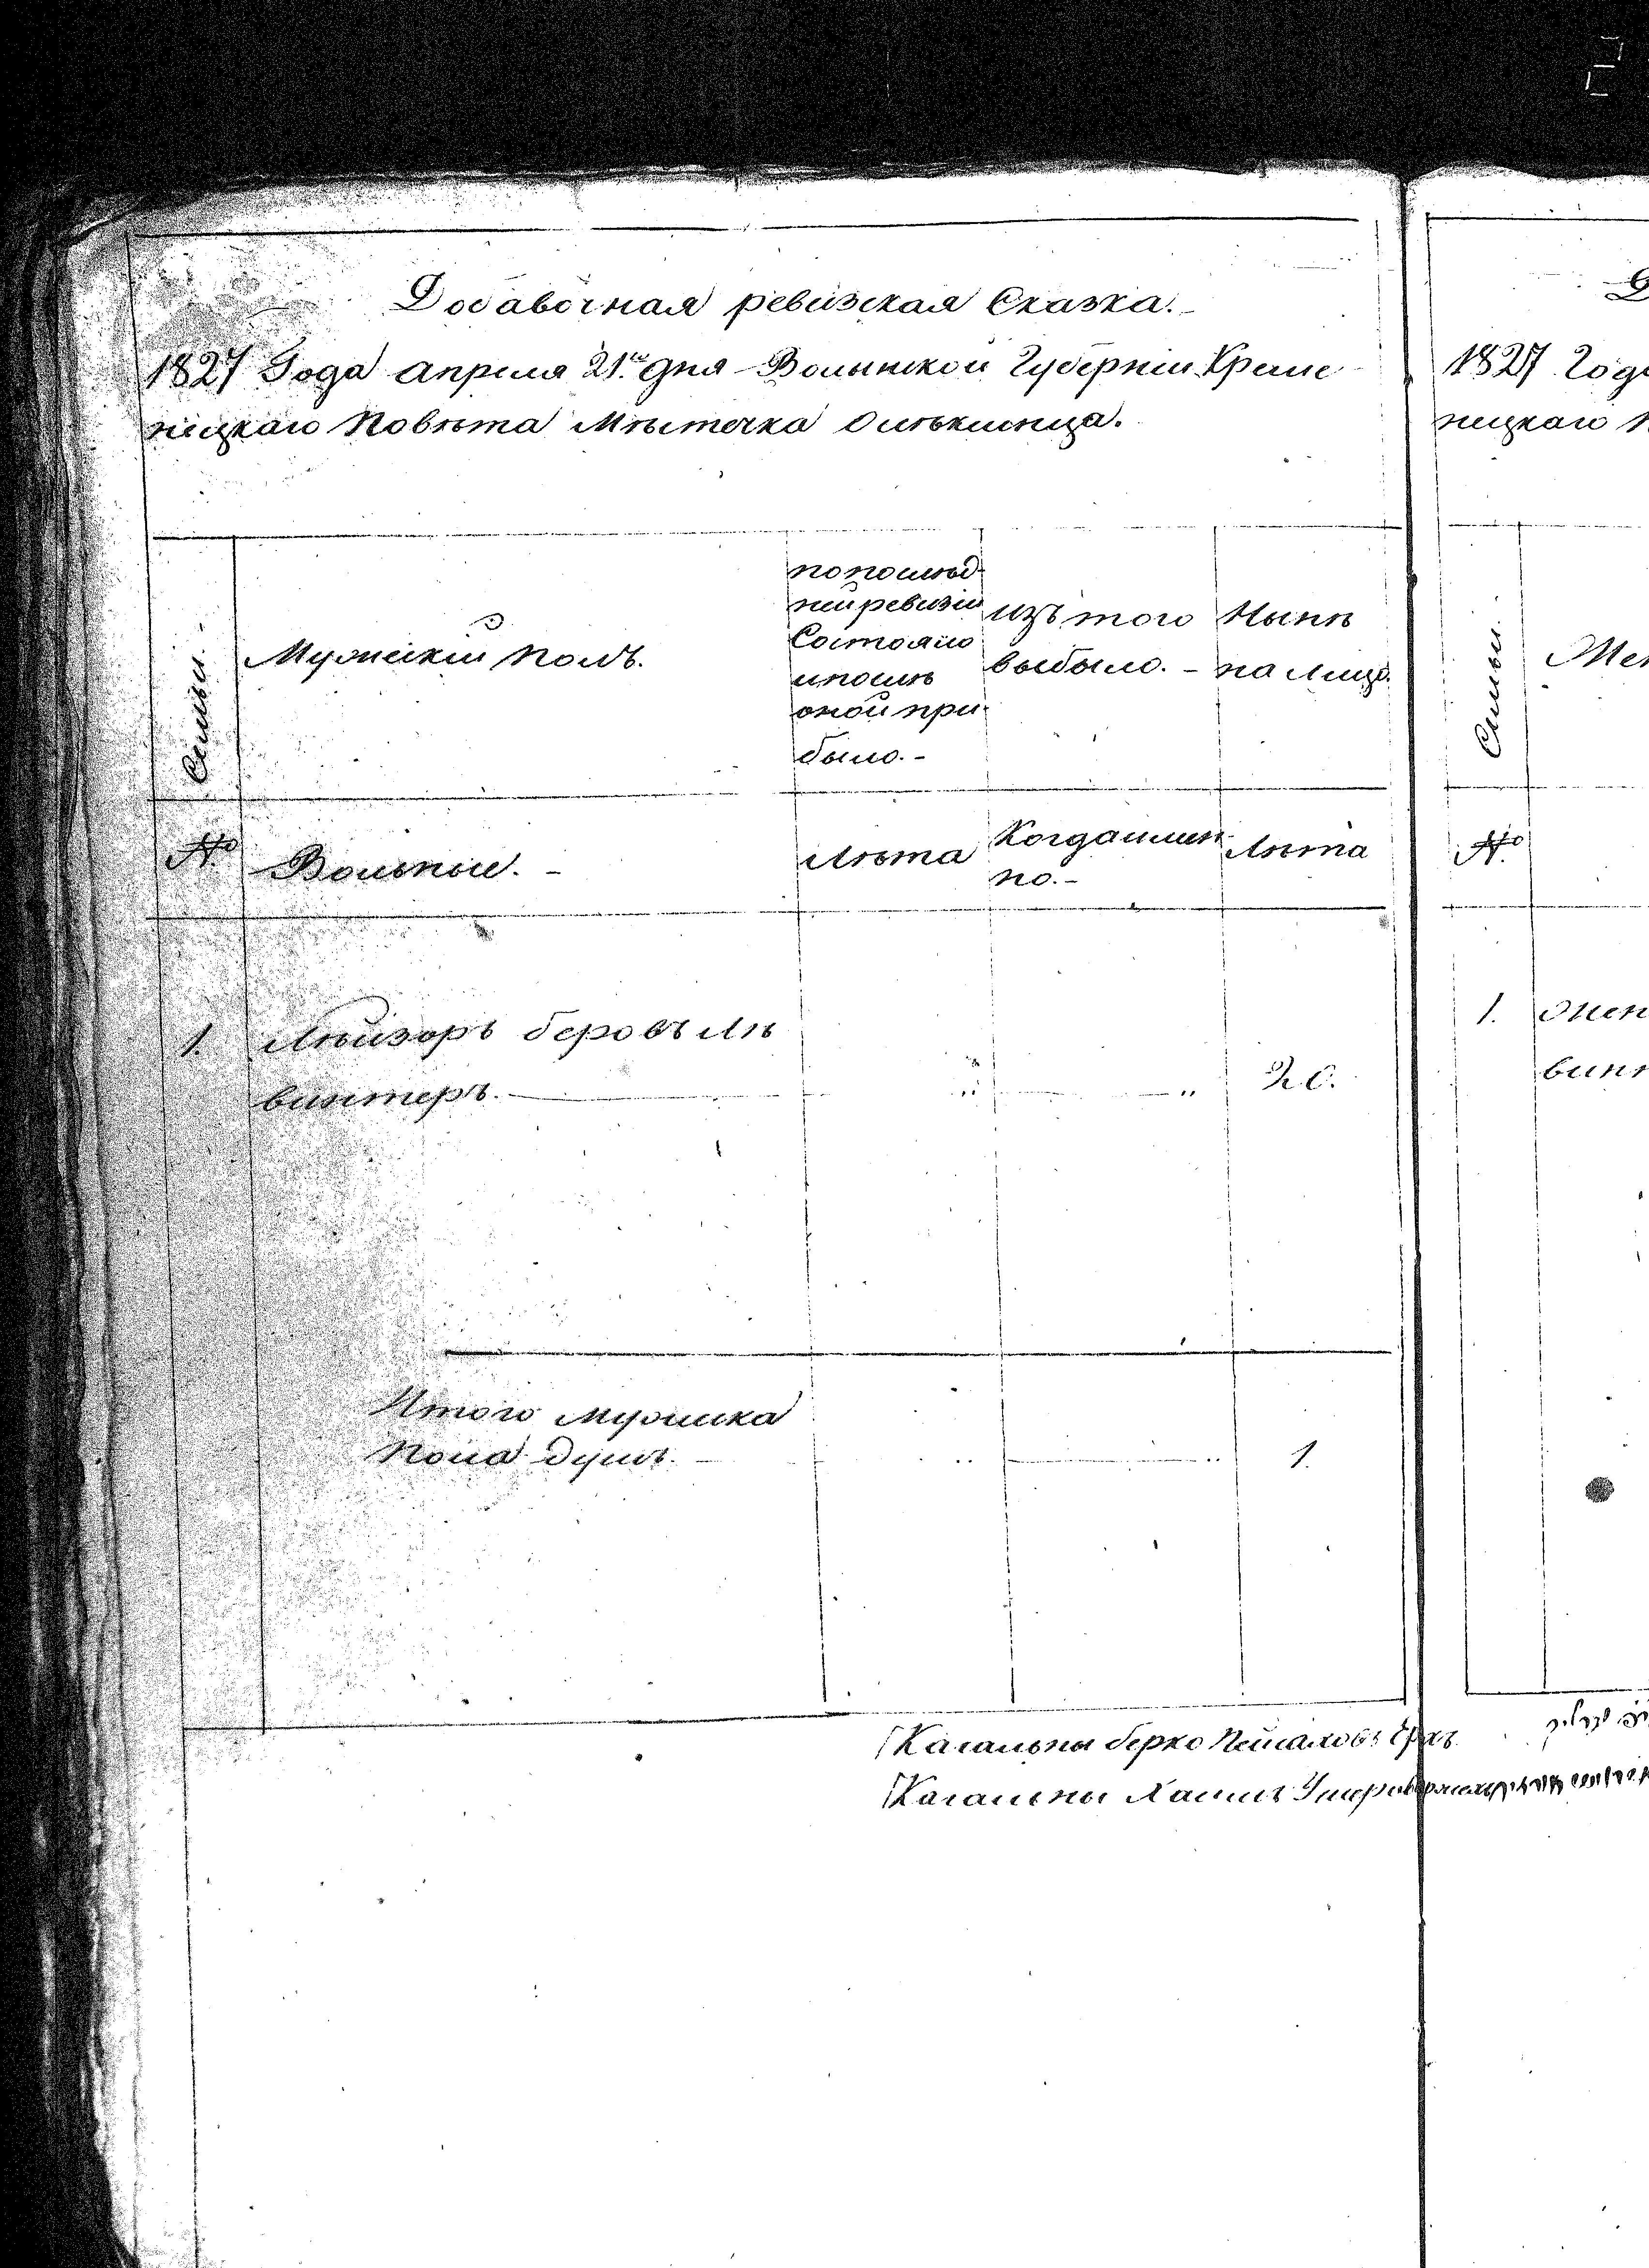 Добавочная ревизская Сказка.-
1827 Года апреля 21го дня Волынской Губерніи Креме
нецкаго Повѣта Мѣстечка
Семьи.-
Мужескій полъ.
по послѣд-
ней ревизіи
Состояло
и послѣ
оной при-
было.-
изъ того
выбыло.-
Нынѣ
на лицо.
№
Вольные.-
Лѣта
Когда имен-
но.-
Лѣта
1. Лейзоръ беровъ
винтеръ.
20.
Итого мужеска
Пола душъ.
1.
Кагальны берко
Кагальны Хаимъ
1827 Года
нецкаго П
Семьи.
Жен
№
1. Жен
вин